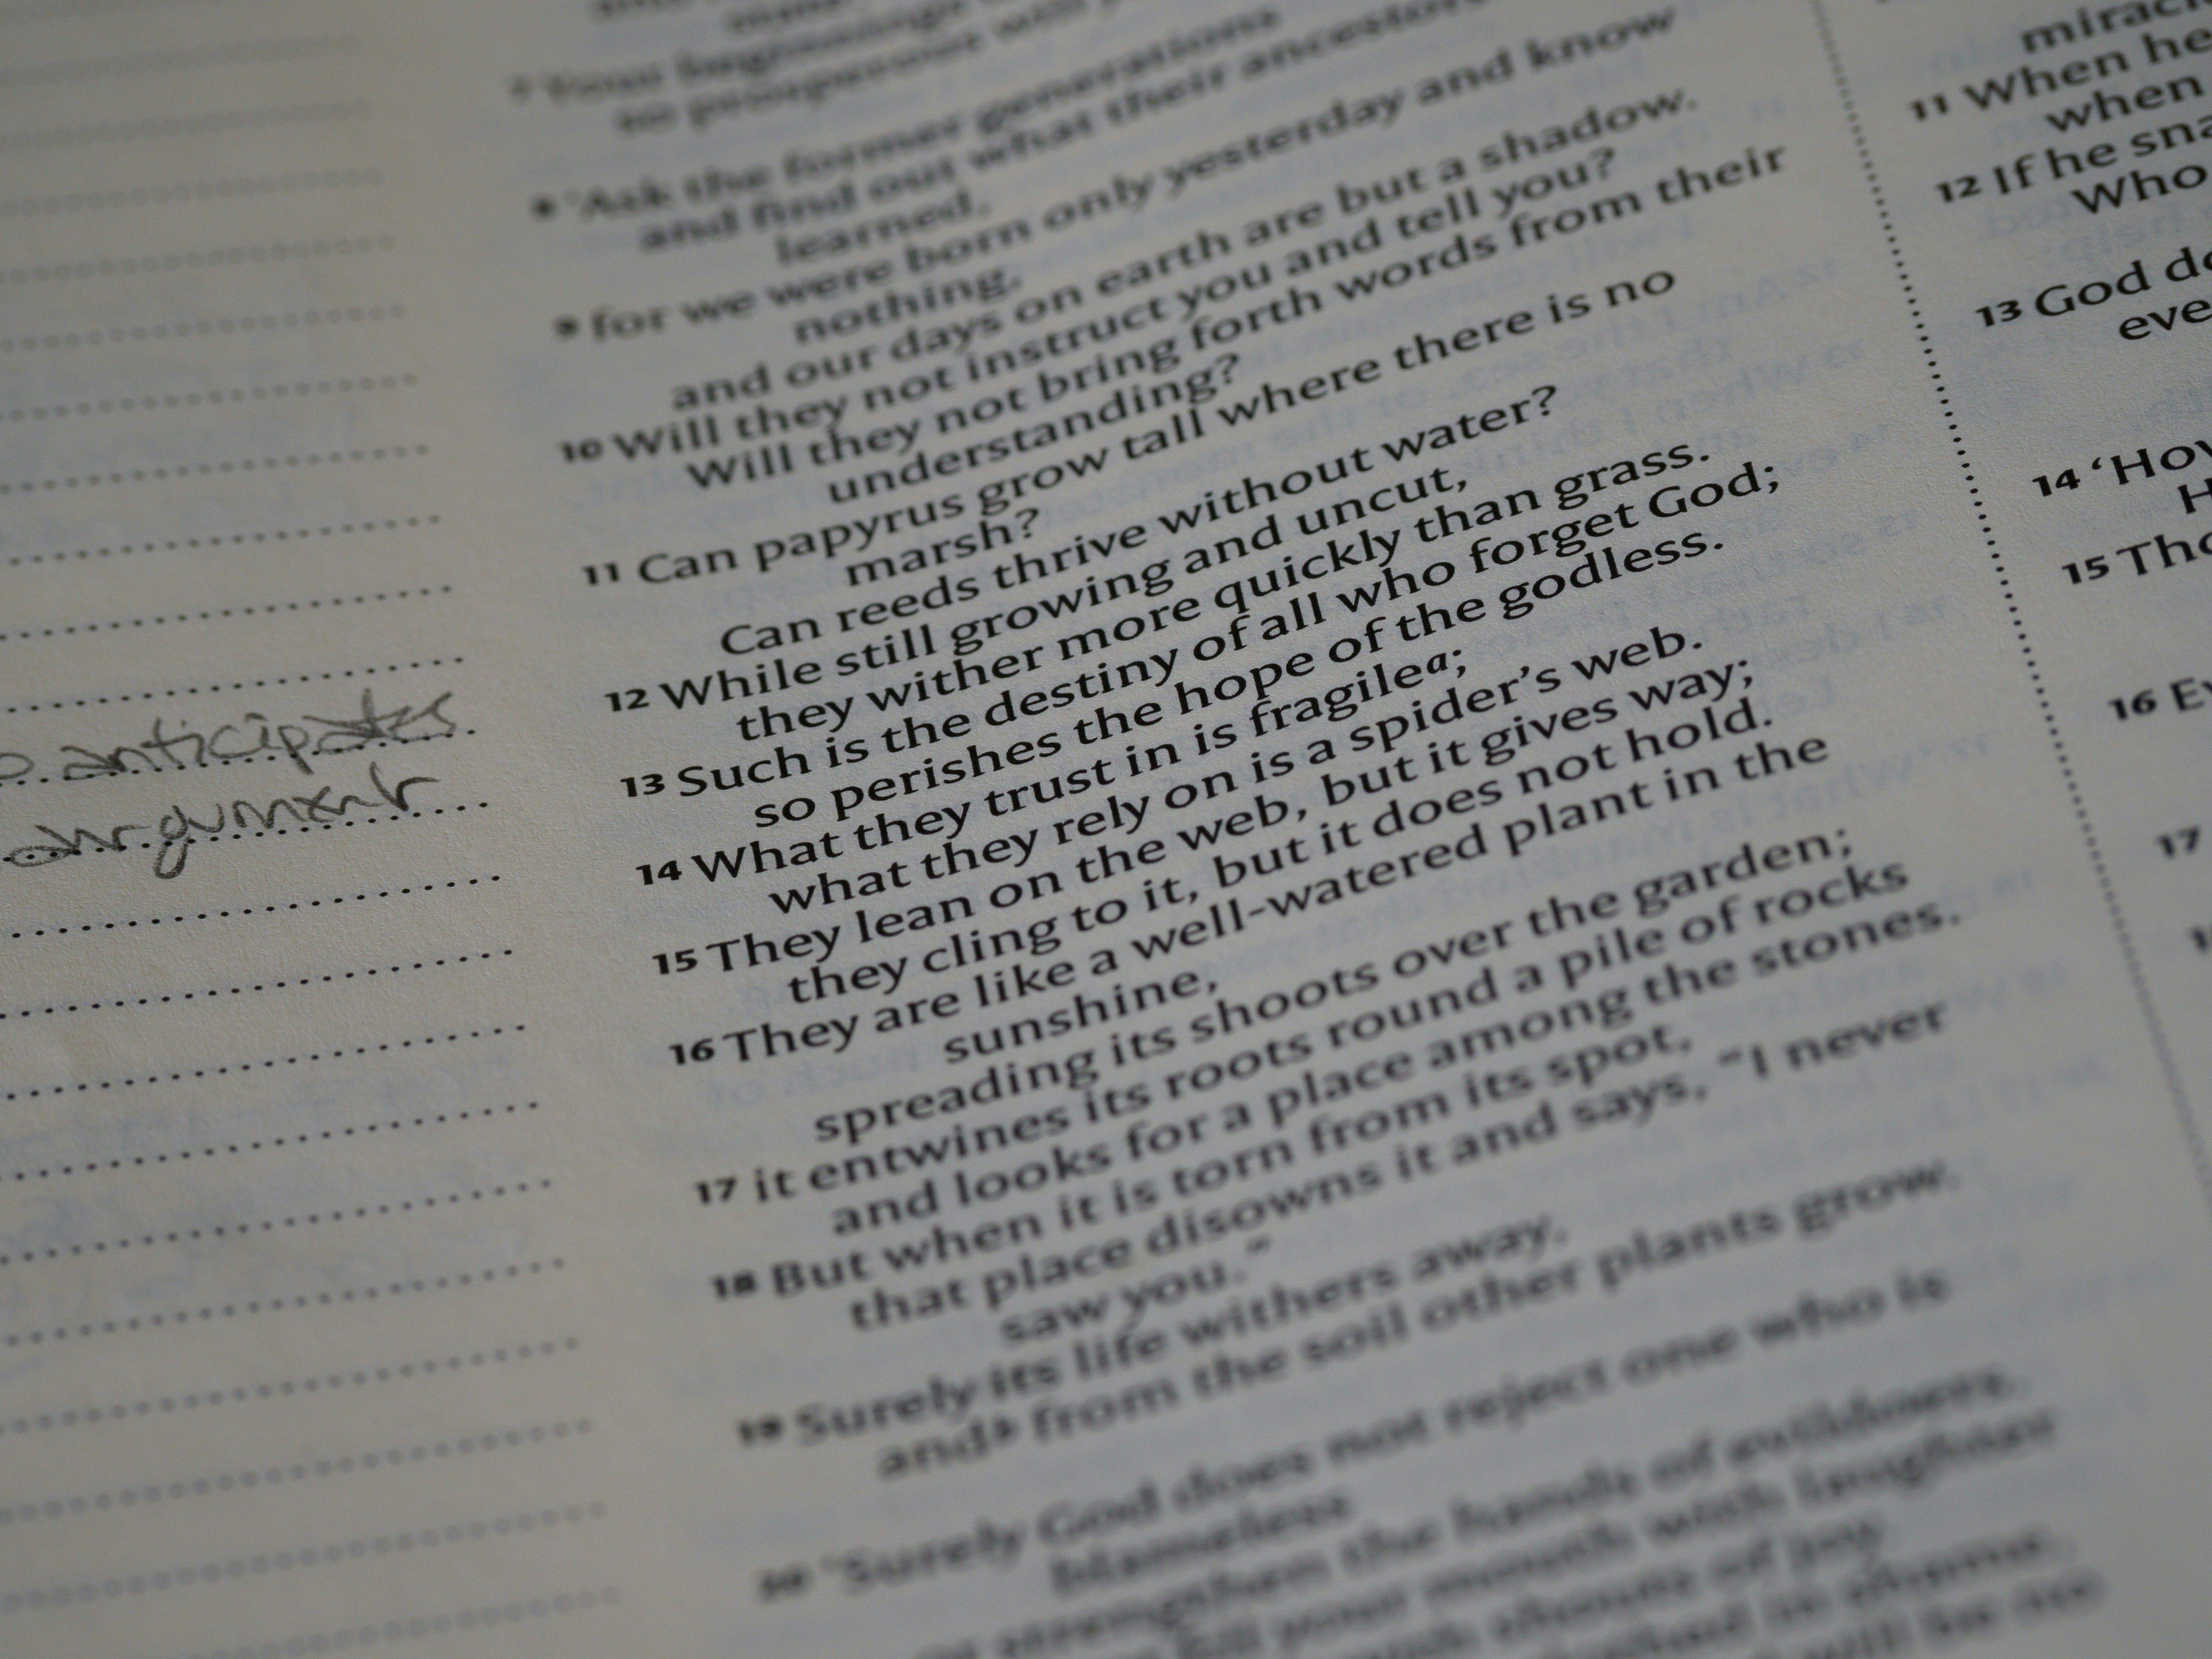 anticipates
argument
7 Your beginnings
so prosperous will
8 'Ask the former generations
and find out what their ancestors
learned,
9 for we were born only yesterday and know
nothing,
and our days on earth are but a shadow.
10 Will they not instruct you and tell you?
Will they not bring forth words from their
understanding?
11 Can papyrus grow tall where there is no
marsh?
Can reeds thrive without water?
12 While still growing and uncut,
they wither more quickly than grass.
13 Such is the destiny of all who forget God;
so perishes the hope of the godless.
14 What they trust in is fragilea;
what they rely on is a spider's web.
15 They lean on the web, but it gives way;
they cling to it, but it does not hold.
16 They are like a well-watered plant in the
sunshine,
spreading its shoots over the garden;
17 it entwines its roots round a pile of rocks
and looks for a place among the stones.
18 But when it is torn from its spot,
that place disowns it and says, "I never
saw you."
19 Surely its life withers away,
andb from the soil other plants grow.
20 'Surely God does not reject one who is
blameless
or strengthen the hands of evildoers.
fill your mouth with laughter
with shouts of joy
in shame,
will be no
11 When he
when
12 If he sna
Who
13 God do
eve
14 'How
H
15 Tho
16 Ev
17